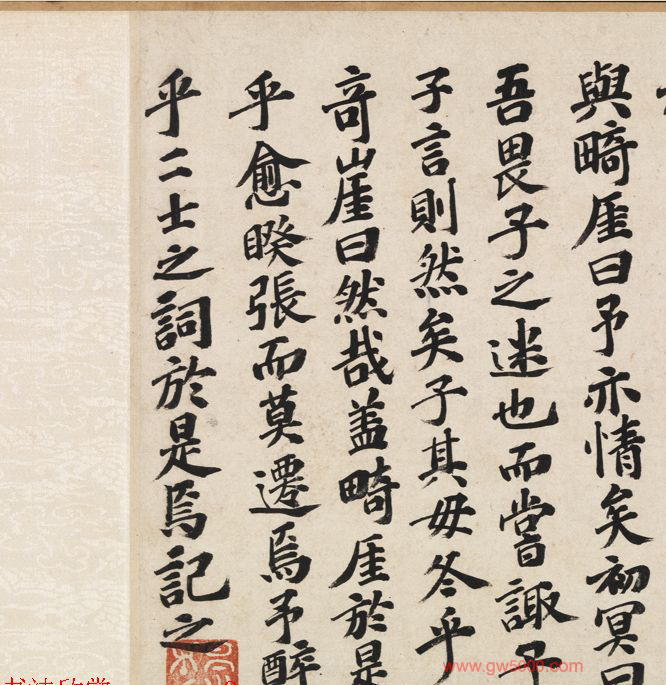 與畸厓曰予亦情矣初冥曰
吾畏子之迷也而嘗諏予
子言則然矣子其毋冬乎
奇崖曰然哉盖畸厓於是
乎愈睽張而莫遷焉予醉
乎二士之詞於是焉記之
www.gw5000.com
书法欣赏